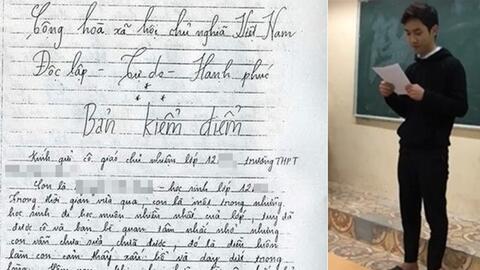 Cộng hoà xã hội chủ nghĩa Việt Nam
Độc lập - Tự do - Hạnh phúc
Bản kiểm điểm
Kính gửi cô giáo chủ nhiệm lớp 12 trường THPT
Con là - học sinh lớp 12
Trong thời gian vừa qua, con là một trong những
học sinh đi học muộn nhiều nhất của lớp, tuy đã
được cô và ban bè quan tâm nhắc nhở nhưng
con vẫn chưa sửa chữa được, đó là điều luôn
làm con cảm thấy xấu hổ và day dứt trong